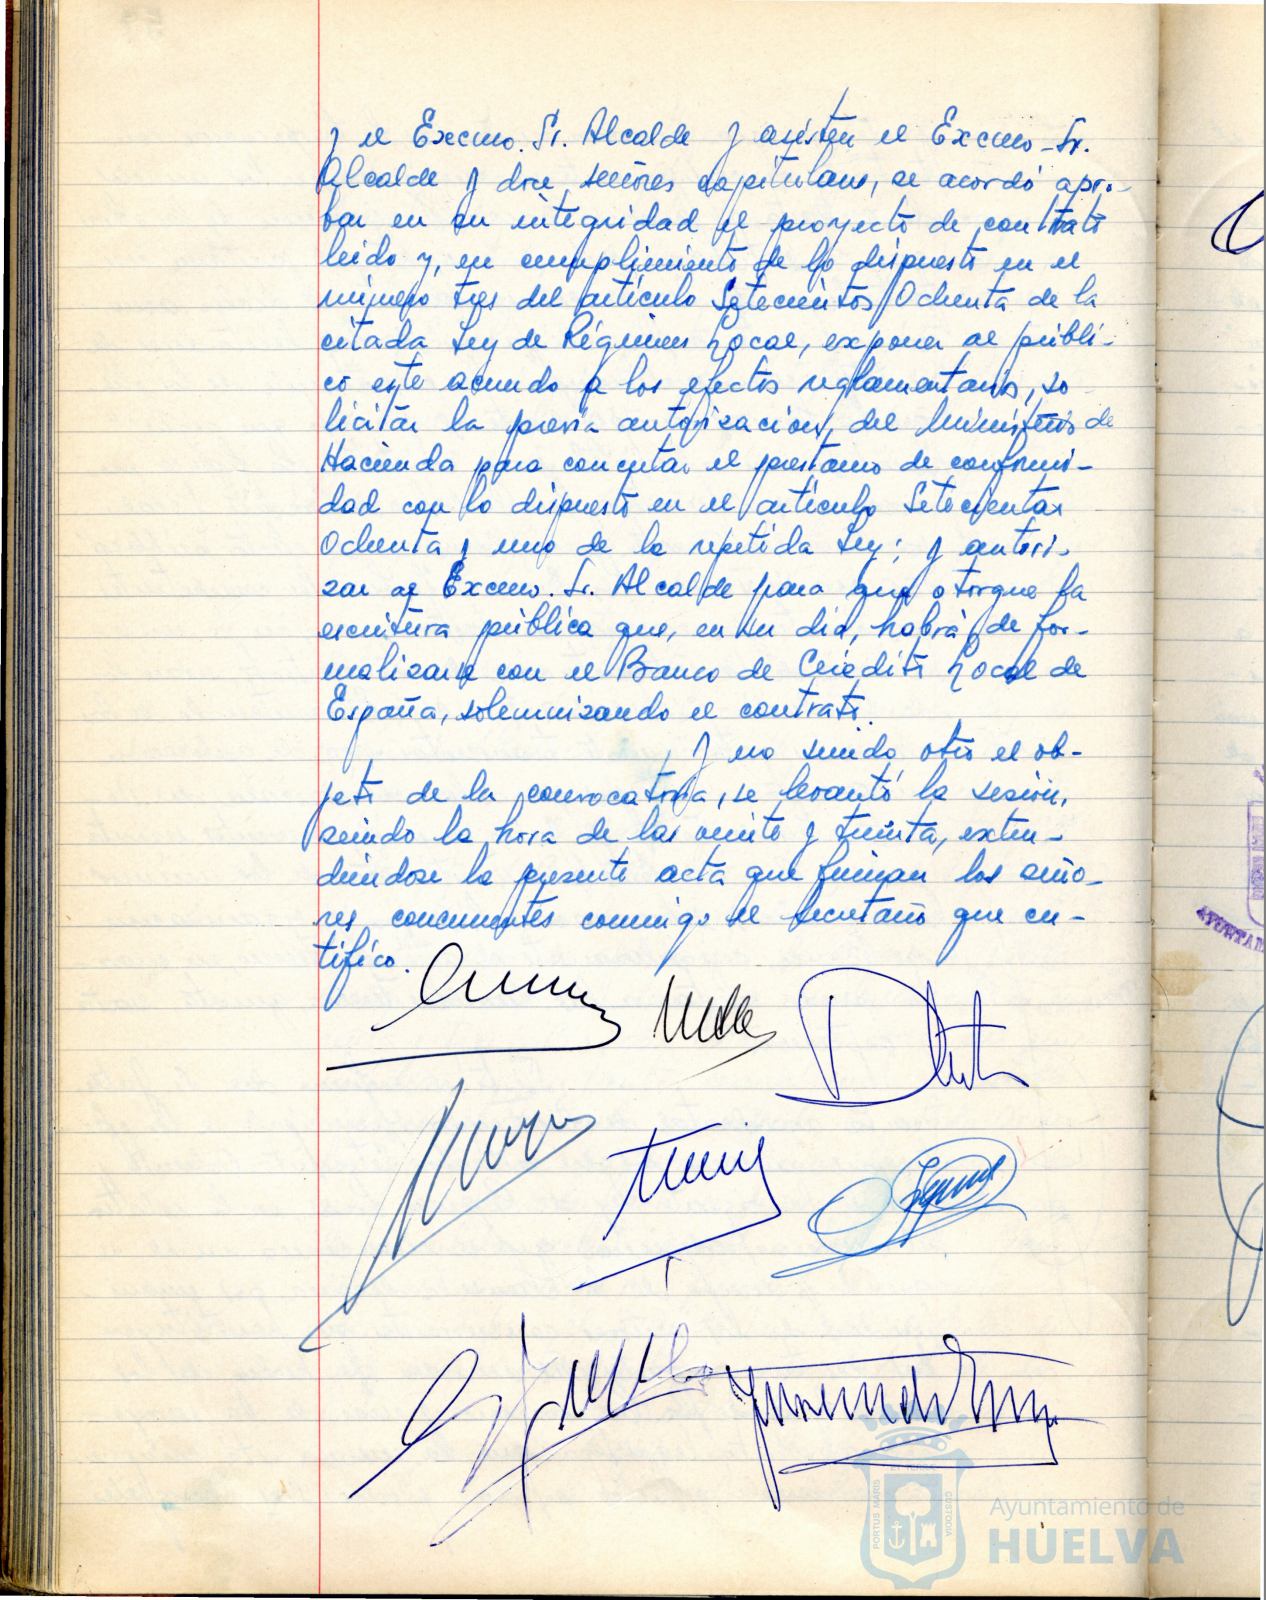 y el Excmo. Sr. Alcalde y asisten el Excmo. Sr.
Alcalde y doce señores capitulares, se acordó apro-
bar en su integridad el proyecto de contrato
leido y, en cumplimiento de lo dispuesto en el
número tres del artículo Setecientos Ochenta de la
citada Ley de Régimen Local, exponer al públi-
co este acuerdo a los efectos reglamentarios, so
licitar la previa autorización, del Ministerio de
Hacienda para concertar el prestamo de conformi-
dad con lo dispuesto en el artículo Setecientos
Ochenta y uno de la repetida Ley; y autori-
zar al Excmo. Sr. Alcalde para que otorgue la
escritura pública que, en su dia, habrá de for-
malizarse con el Banco de Crédito Local de
España, solemnizando el contrato.
Y no siendo otro el ob-
jeto de la convocatoria, se levantó la sesión,
siendo la hora de las veinte y treinta, exten-
diéndose la presente acta que firman los seño-
res concurrentes conmigo el Secretario que cer-
tifico.
PORTUS MARIS
CUSTODIA
Ayuntamiento de
HUELVA